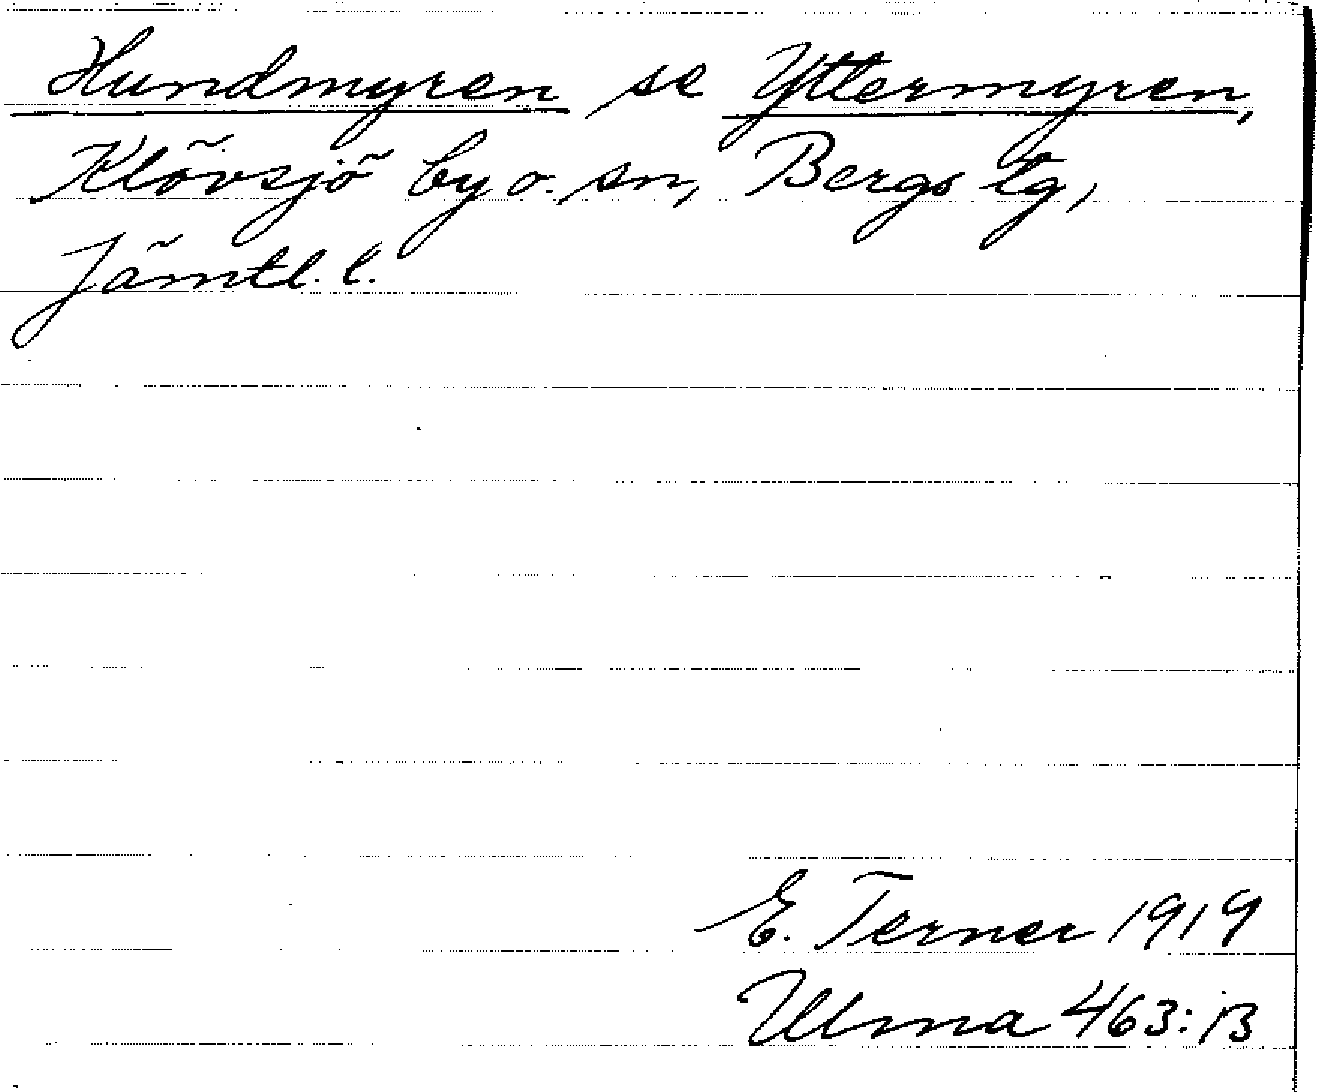 Hundmyren se Yttermyren,
Klövsjö by o. sn, Bergs tg,
Jämtl. l.
E. Terner 1919
Ulma 463:13